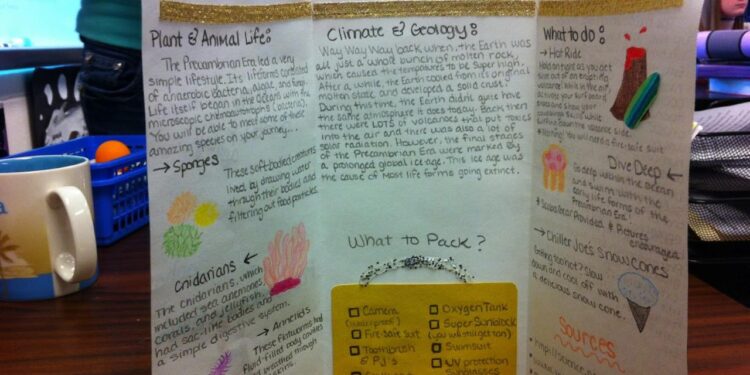 Plant & Animal Life:
The Precambrian Era led a very
simple lifestyle. Its lifeforms consisted
of anaerobic Bacteria, algae, and fungi.
Life itself began in the oceans with the
microscopic chemoautotrophs (bacteria).
You will be able to meet some of these
amazing species on your journey...
→ Sponges
These soft-bodied creatures
lived by drawing water
through their bodies and
filtering out food particles.
Cnidarians ←
The cnidarians, which
included sea anemones,
corals, and jellyfish,
had sac-like bodies and
a simple digestive system.
→ Annelids
These flatworms had
fluid-filled body cavities
and breathed through
Climate & Geology:
Way Way Way back when, the Earth was
all just a whole bunch of molten rock,
which caused the temperatures to be super high.
After a while, the Earth cooled from its original
molten state and developed a solid crust!
During this time, the Earth didnt quite have
the same atmosphere it does today. Back then
there were LOTS of volcanoes that put toxics
into the air and there was also a lot of
solar radiation. However, the final stages
of the Precambrian Era were marked by
a prolonged global ice age. This ice age was
the cause of most life forms going extinct.
What to Pack?
Camera
(waterproof)
Fire-safe suit
Toothbrush
& PJ's
Oxygen Tank
Super Sunblock
(you will still get tan)
Swimsuit
UV protection
sunglasses
What to do:
→ Hot Ride
out of an erupting
volcano! Walk in the air,
activate your surf board
and show how
surfing down the volcanoe side.
*Warning! You will need a fire-safe suit
Dive Deep ←
Go deep within the ocean
and swim with the
early life forms of the
Precambrian Era!
*Scuba Gear Provided & Pictures
encouraged
→ Chiller Joe's Snow Cones
Going too hot? Slow
down and cool off with
a delicious snow cone.
Sources